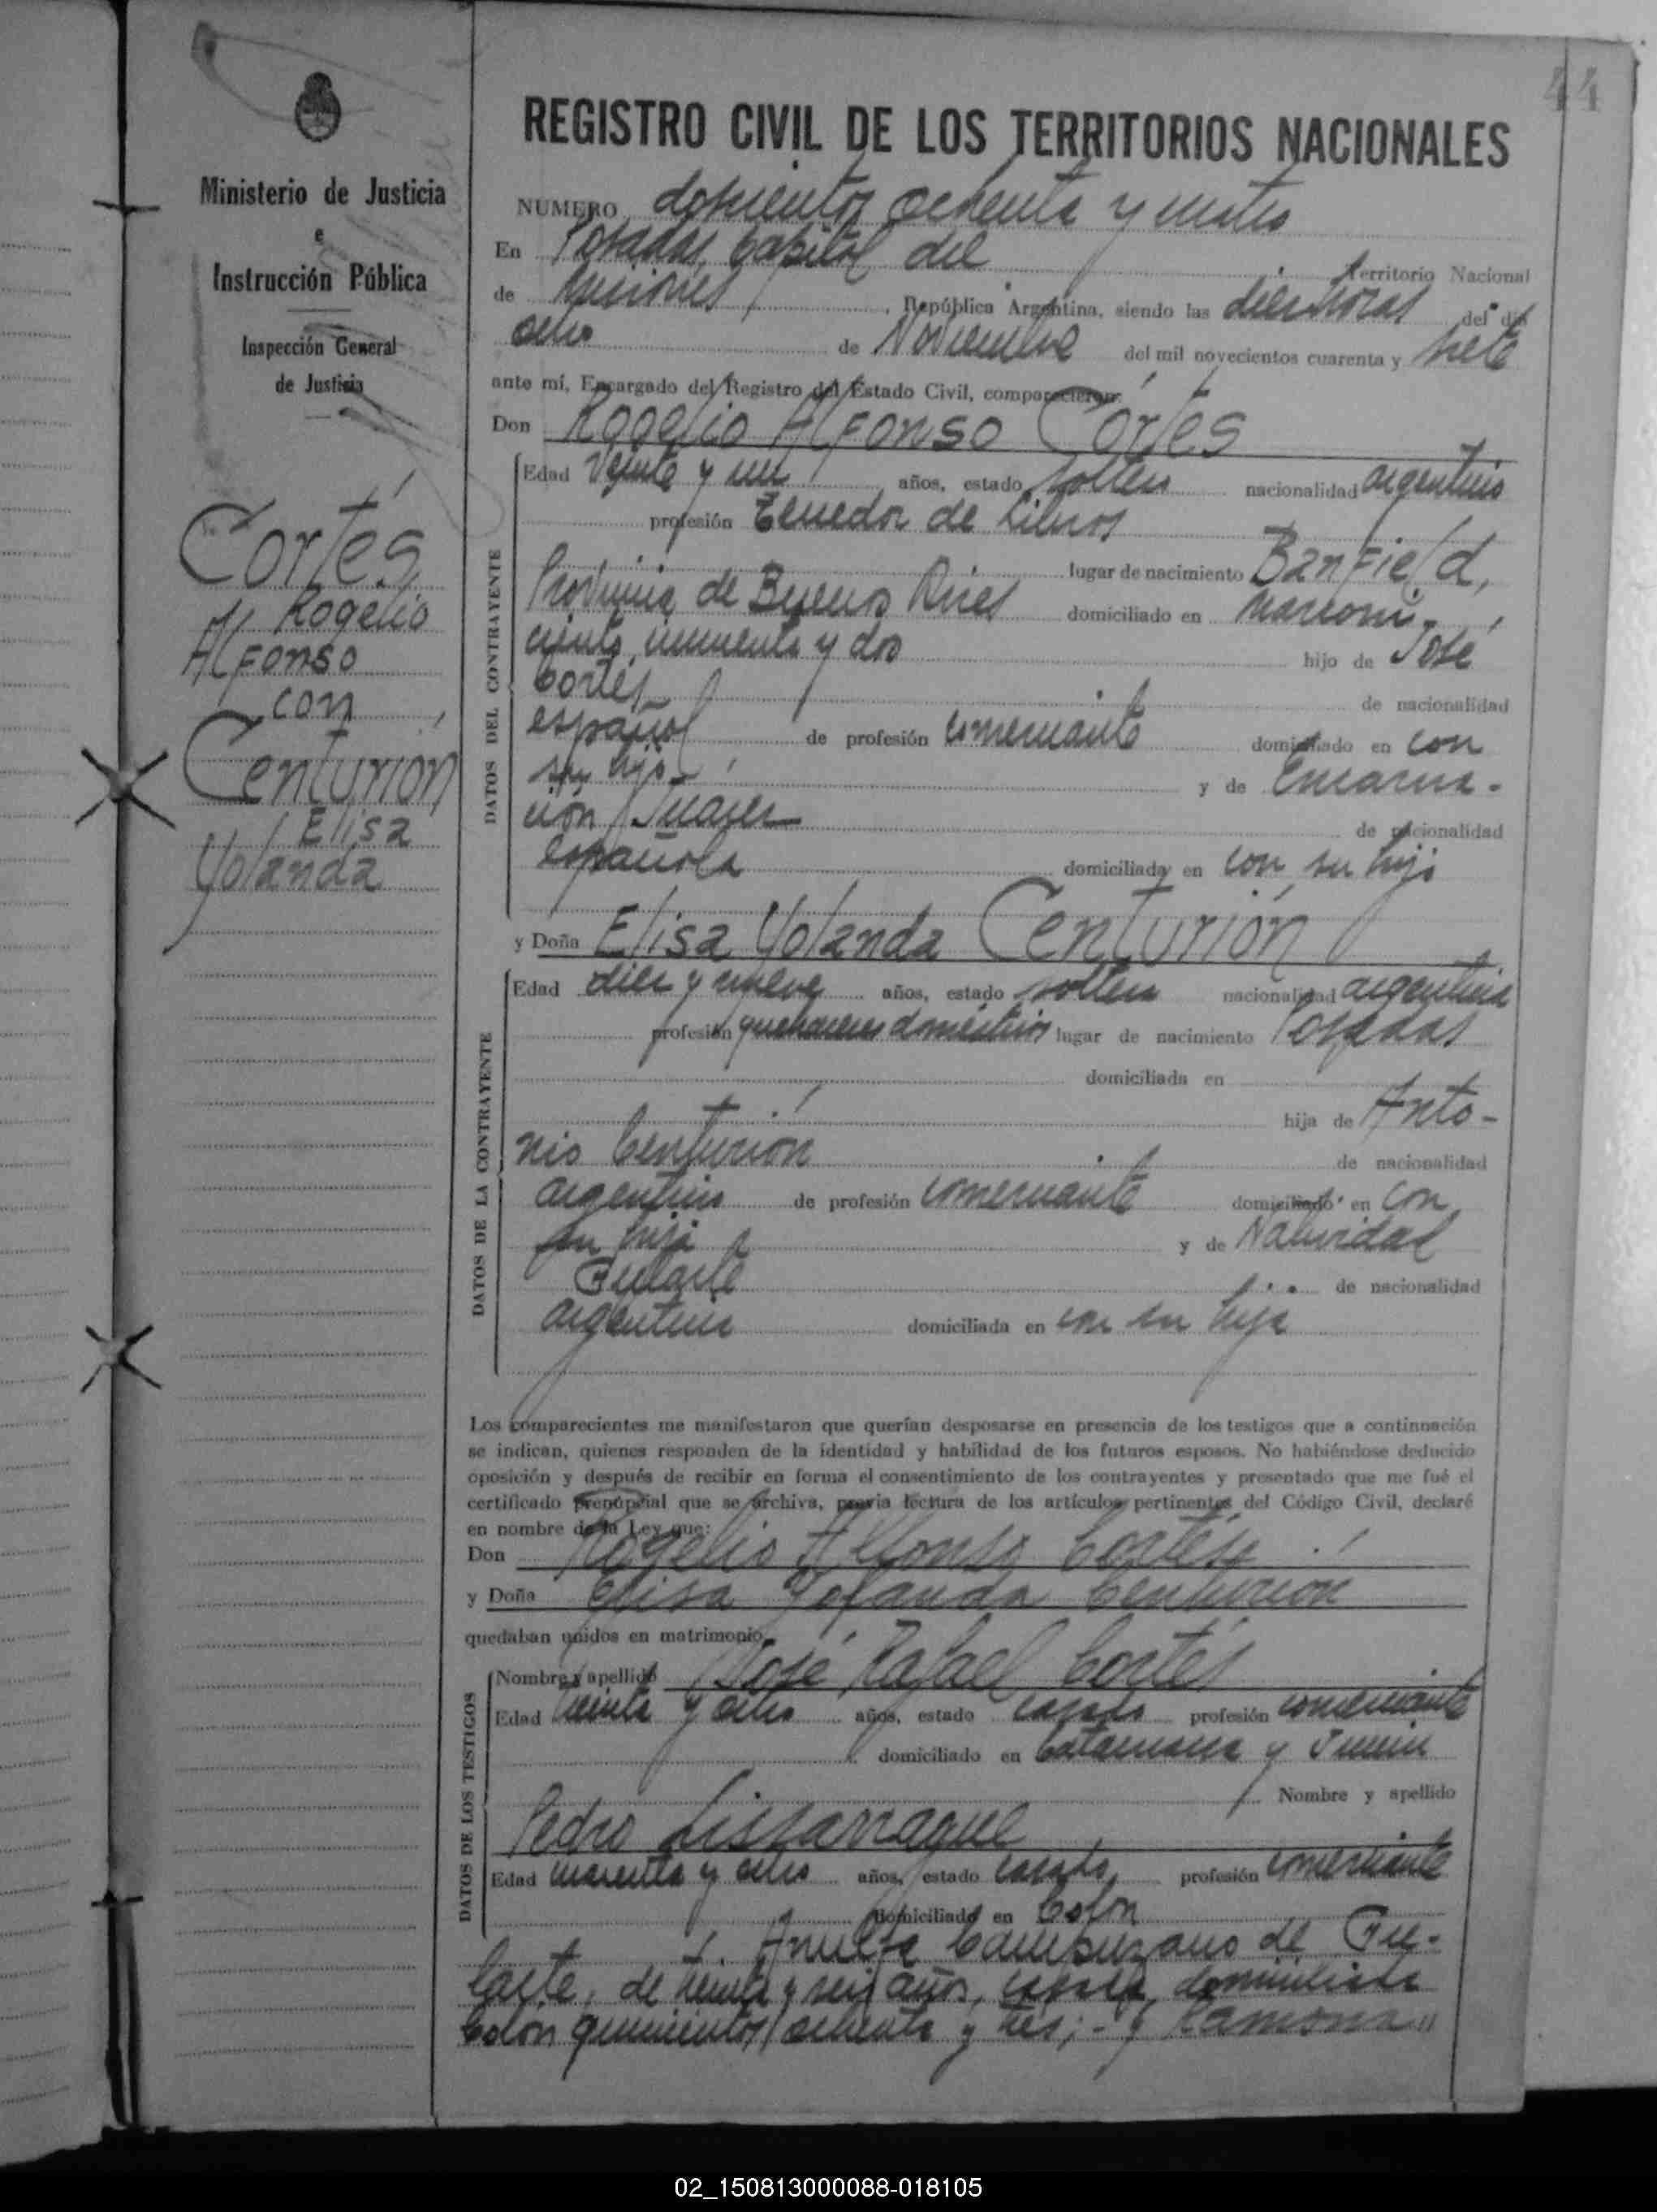 44
Ministerio de Justicia
e
Instrucción Pública
Inspección General
de Justicia
Cortés,
Rogelio
Alfonso
con
Centurión
Elisa
Yolanda
REGISTRO CIVIL DE LOS TERRITORIOS NACIONALES
NUMERO doscientos ochenta y cuatro
En Posadas, Capital del territorio Nacional
de Misiones, República Argentina, siendo las diez horas del día
ocho de Noviembre del mil novecientos cuarenta y siete
ante mí, Encargado del Registro del Estado Civil, comparecieron:
Don Rogelio Alfonso Cortés
DATOS DEL CONTRAYENTE
Edad veinte y un años, estado soltero nacionalidad argentino
profesión Tenedor de Libros
lugar de nacimiento Banfield,
Provincia de Buenos Aires domiciliado en Marconi
ciento cincuenta y dos hijo de José
Cortés de nacionalidad
español de profesión comerciante domiciliado en con
su hijo y de Encarna-
ción Juarez de nacionalidad
española domiciliada en con su hijo
y Doña Elisa Yolanda Centurión
DATOS DE LA CONTRAYENTE
Edad diez y nueve años, estado soltera nacionalidad argentina
profesión quehaceres domésticos lugar de nacimiento Posadas
domiciliada en
hija de Anto-
nio Centurión de nacionalidad
argentino de profesión comerciante domiciliado en con
su hija y de Natividad
Gularte de nacionalidad
argentina domiciliada en con su hija
Los comparecientes me manifestaron que querían desposarse en presencia de los testigos que a continuación
se indican, quienes responden de la identidad y habilidad de los futuros esposos. No habiéndose deducido
oposición y después de recibir en forma el consentimiento de los contrayentes y presentado que me fué el
certificado prenupcial que se archiva, previa lectura de los artículos pertinentes del Código Civil, declaré
en nombre de la Ley que:
Don Rogelio Alfonso Cortés
y Doña Elisa Yolanda Centurión
quedaban unidos en matrimonio.
DATOS DE LOS TESTIGOS
Nombre y apellido José Rafael Cortés
Edad veinte y ocho años, estado casado profesión comerciante
domiciliado en Catamarca y Junin
Nombre y apellido
Pedro Lissarrague
Edad cuarenta y ocho años, estado casado profesión comerciante
domiciliado en Colón
Campuzano de Gu-
larte, de treinta y seis años, casada, domiciliada
Colón quinientos ochenta y tres; - y Ramona
02_150813000088-018105